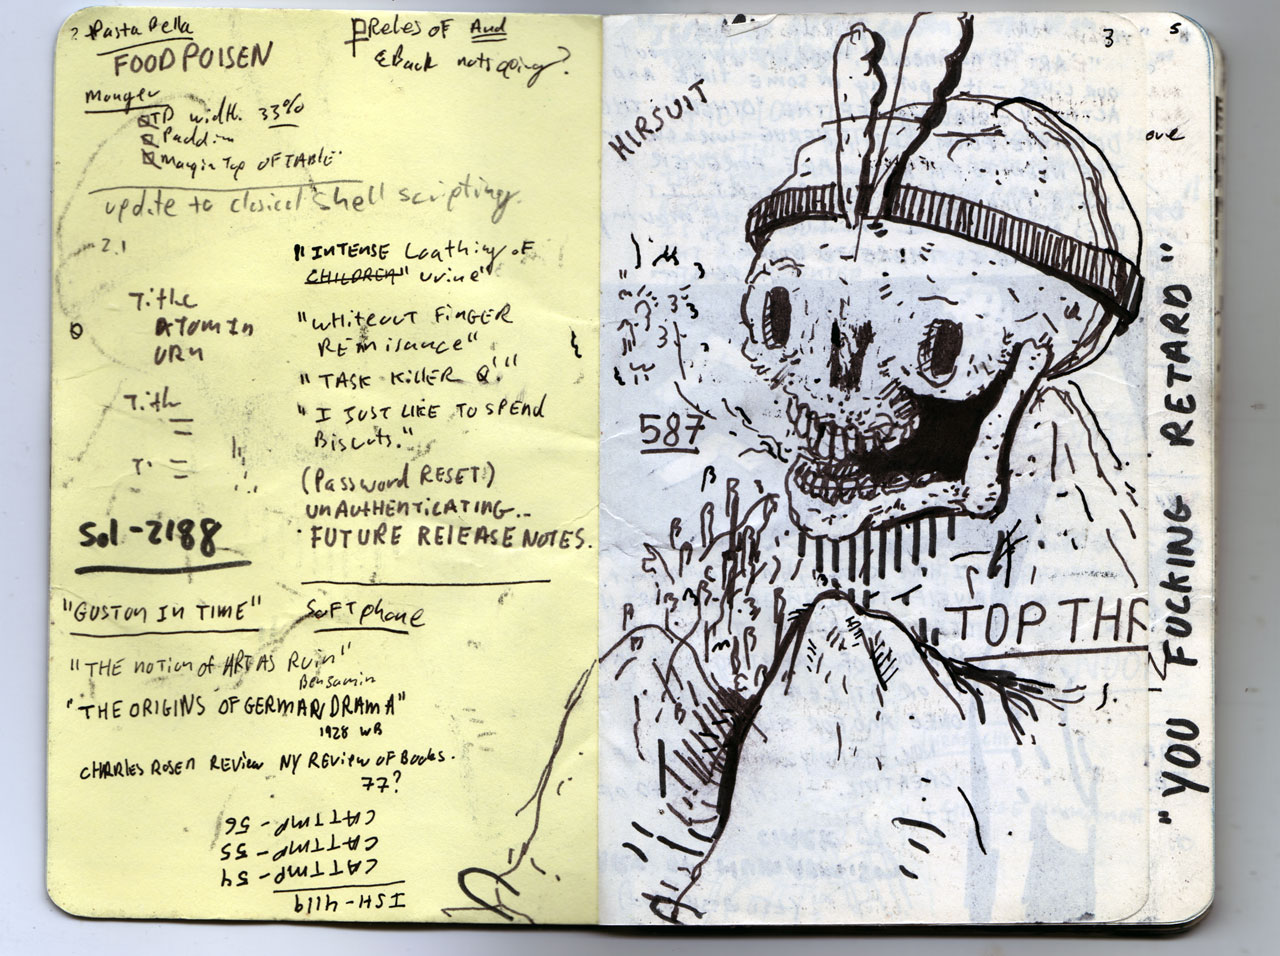 ? Pasta Bella
FOOD POISEN
Manger
TD width. 33%
Paddin
Margin Top OF TABLE
update to clasical shell scripting.
2.1
Title
ATOM IN
URN
Tith
T.
Sol-2188
"GUSTON IN TIME"
"THE notion of ART AS Ruin"
Bensamin
"THE ORIGINS OF GERMAN DRAMA"
1928 WB
CHARLES ROSEN REView NY REView OF Books.
77?
ISH-4119
CATTMP-54
CATTMP-55
CATTMP-56
PReles OF And
&Back not going?
"INTENSE Loathing OF
CHILDREN" urine"
"WHITEOUT FINGER
REMISANCE"
"TASK KILLER Q."
"I JUST LIKE TO SPEND
Biscuts."
(Password RESET)
UNAUTHENTICATING..
FUTURE RELEASE NOTES.
SOFTphone
HIRSUIT
587
3
s
ove
TOP THR
"YOU FUCKING RETARD"